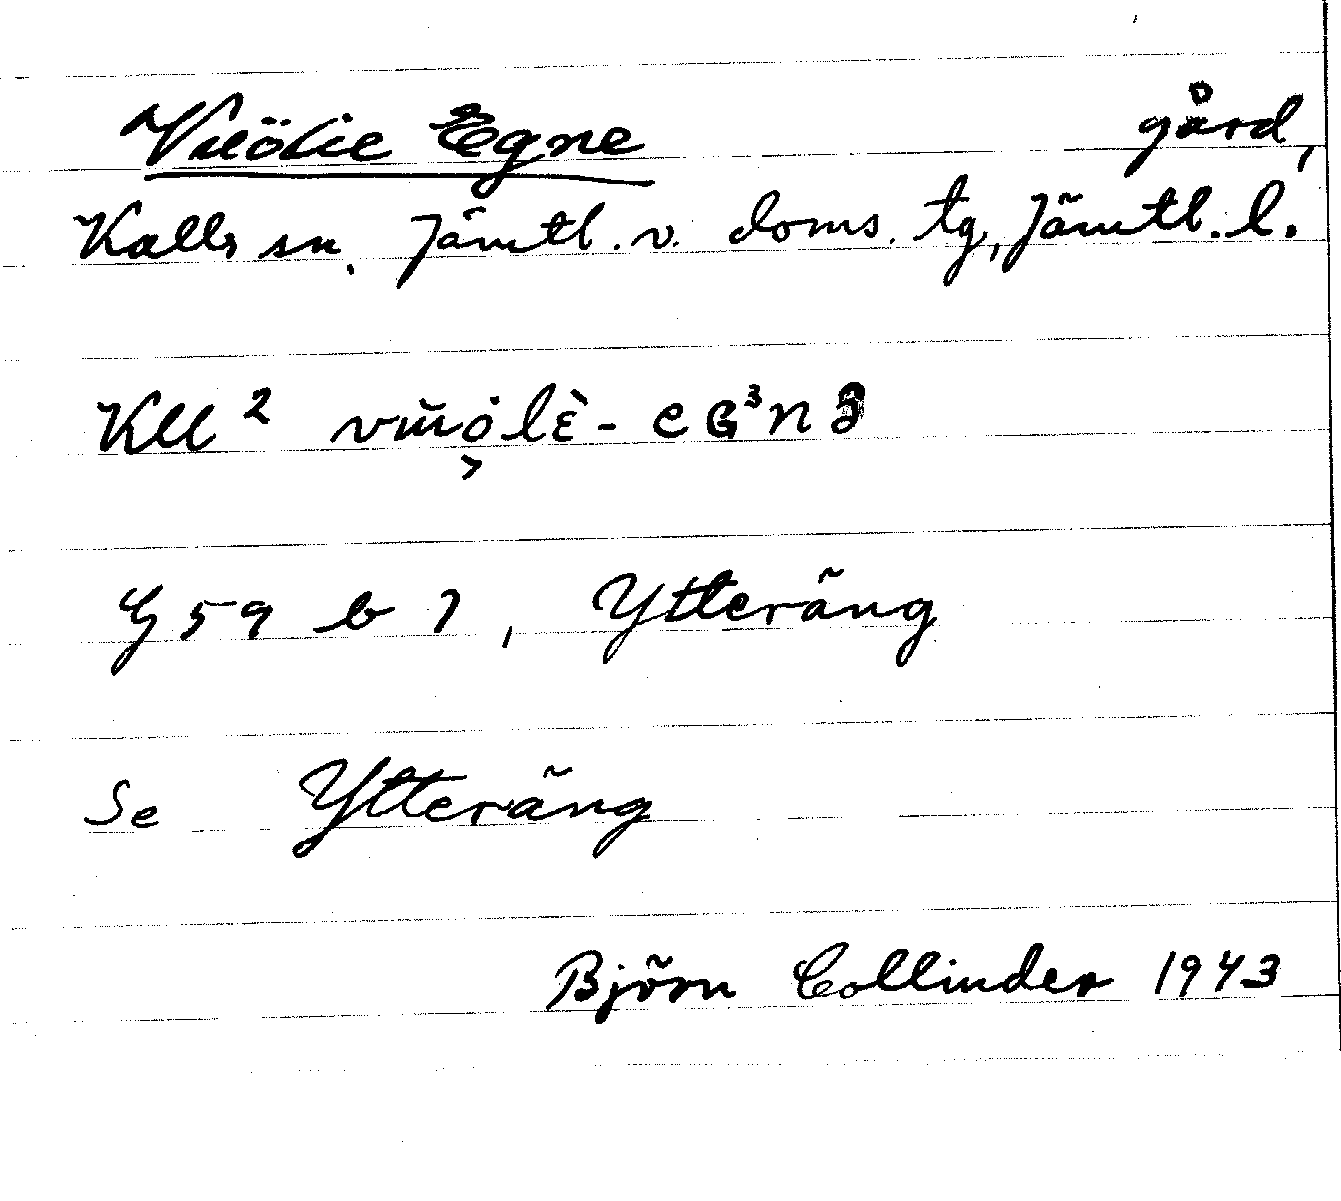 Vuölie Egne gård,
Kalls sn. Jämtl. v. doms. tg, Jämtl. l.
Kll² - eɢ³nə
G 59 b 7, Ytteräng
Se Ytteräng
Björn Collinder 1943